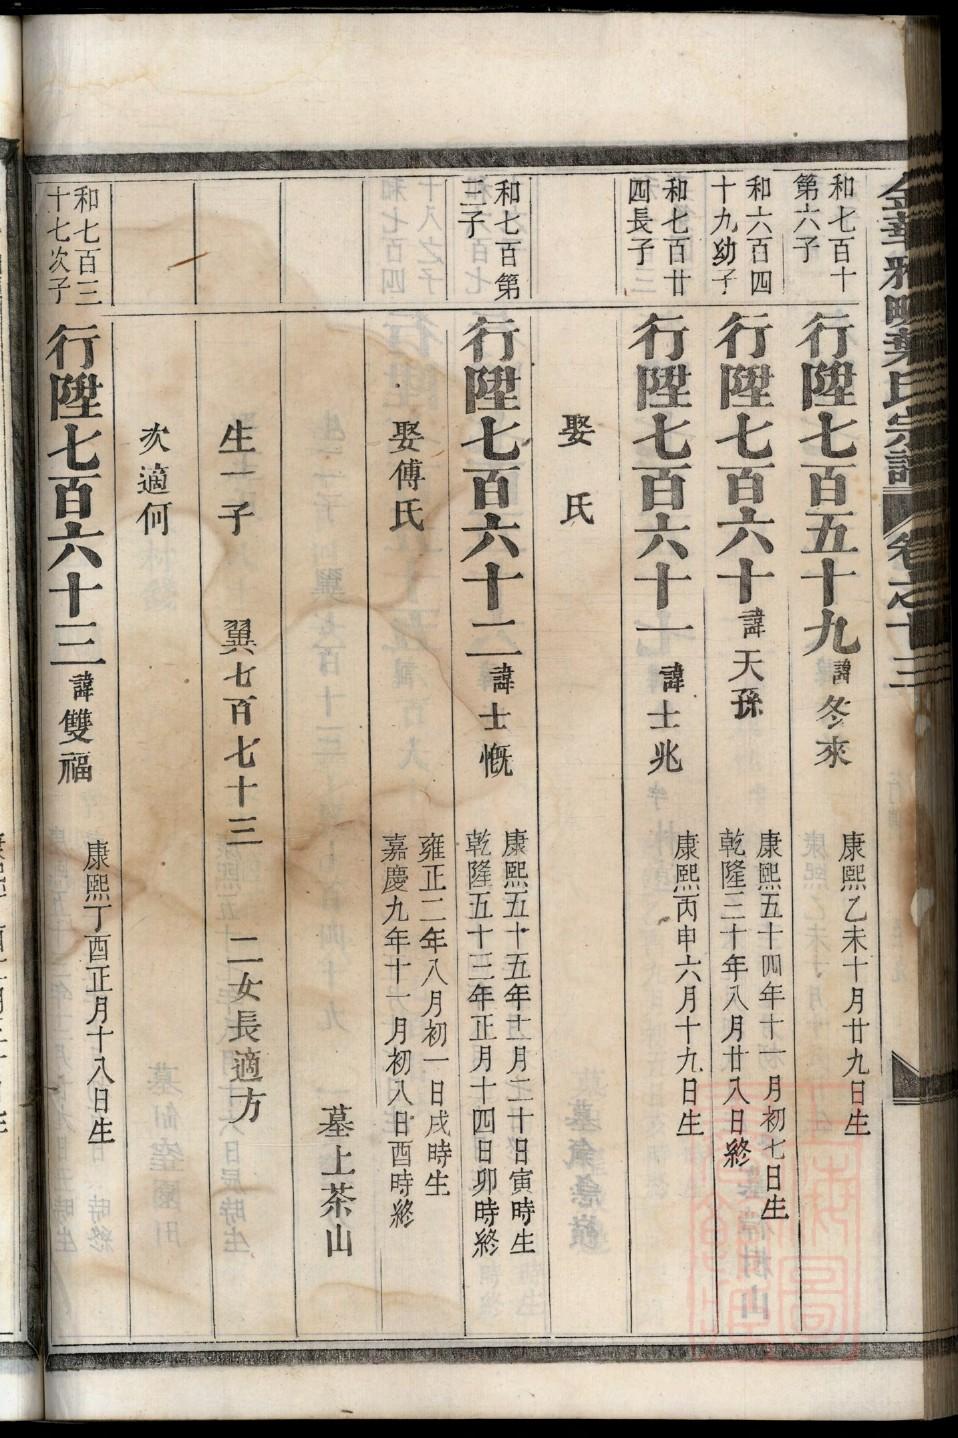 金華雅畈葉氏宗譜 卷之十三
和七百十
第六子
行陞七百五十九諱冬來
康熙乙未十月廿九日生
和六百四
十九幼子
行陞七百六十諱天孫
康熙五十四年十一月初七日生
乾隆三十年八月廿八日終
和七百廿
四長子
行陞七百六十一諱士兆
康熙丙申六月十九日生
娶 氏
和七百第
三子
行陞七百六十二諱士慨
康熙五十五年十二月二十日寅時生
乾隆五十三年正月十四日卯時終
娶傅氏
雍正二年八月初一日戌時生
嘉慶九年十一月初八日酉時終
墓上茶山
生一子 翼七百七十三 二女長適方
次適何
和七百三
十七次子
行陞七百六十三諱雙福
康熙丁酉正月十八日生